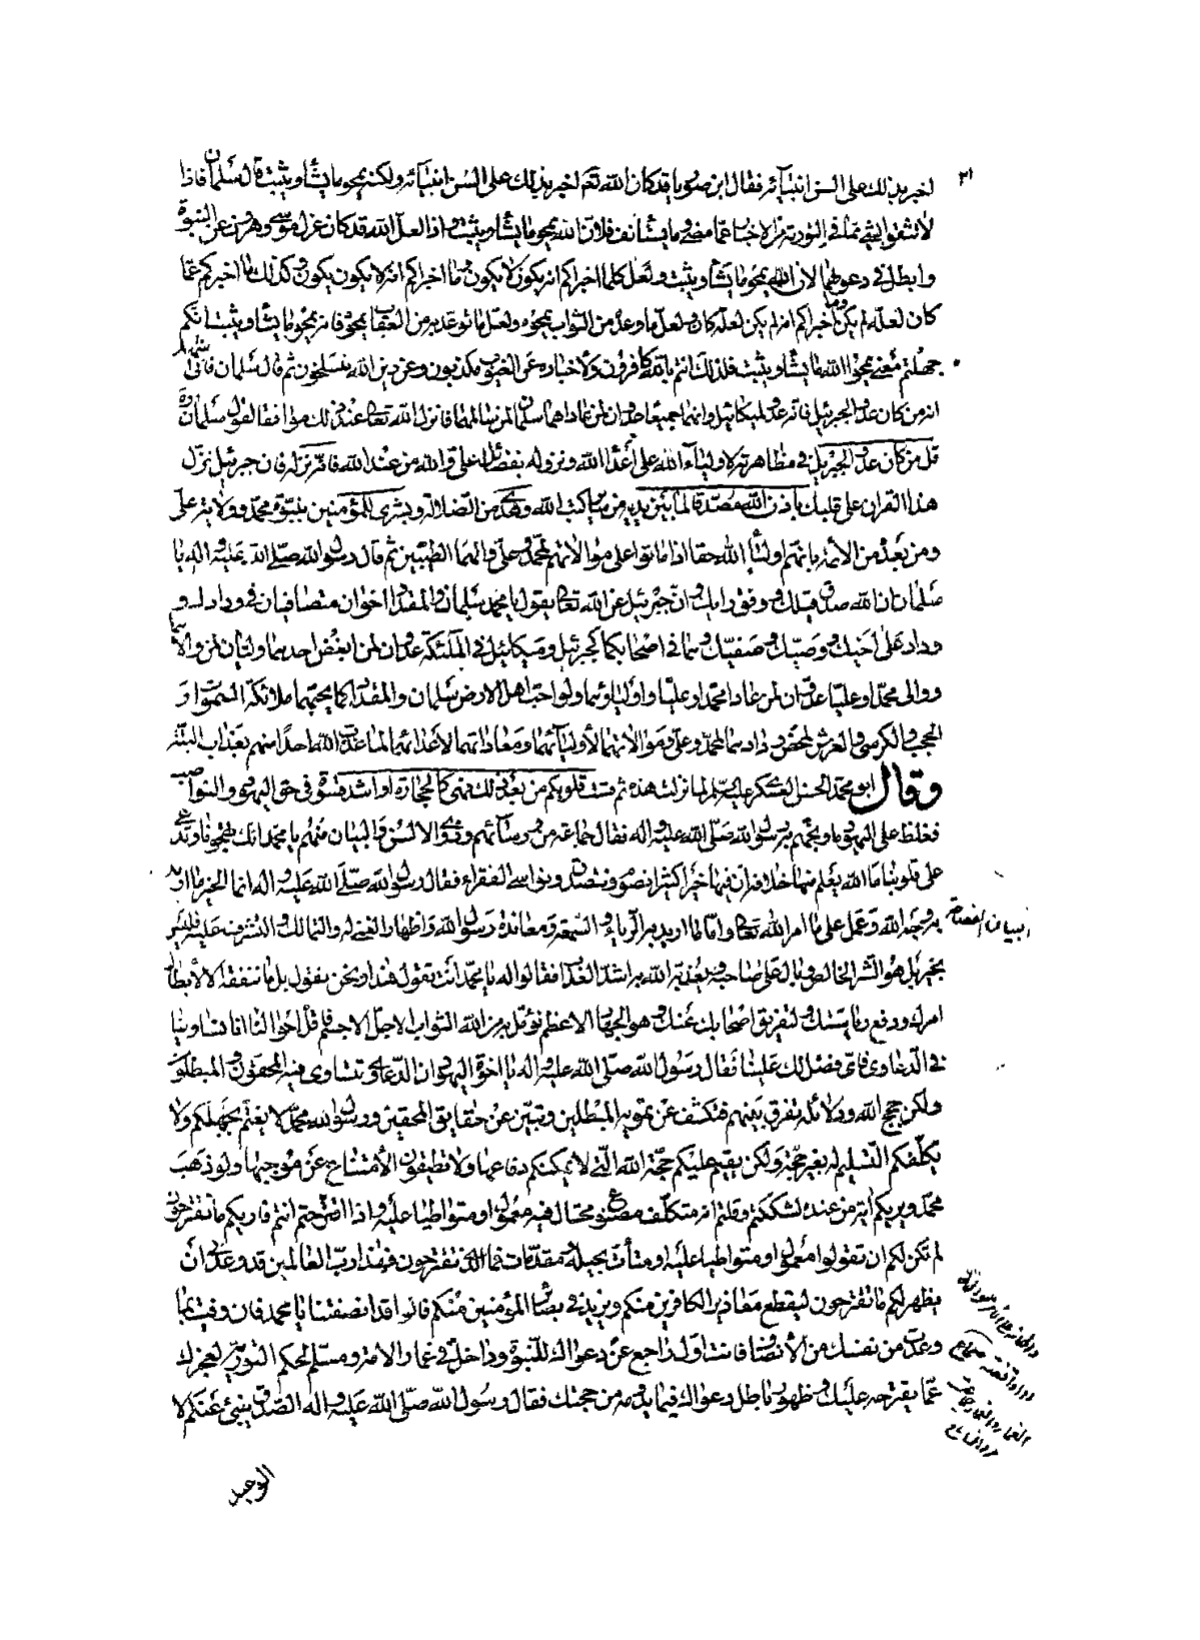 ٢١
لخبر بذلك على السن انبيآئه فقال ابن صوريا قد كان الله تعم لخبر بذلك على السن انبيآئه ولكنه يمحو ما يشأ ويثبت قال سلمان فاذا
لا تثقوا بشئ مما في التورية من الاخبار عما مضى وما يستأنف فلان الله يمحو ما يشأ ويثبت واذا لعل الله قد كان عزل موسى وهرون عن النبوة
وابطل في دعوهما لان الله يمحو ما يشأ ويثبت ولعل كلما اخبراكم انه يكون لا يكون وما اخبراكم انه لا يكون يكون وكذلك ما اخبركم عما
كان لعله لم يكن وما اخبراكم انه لم يكن لعله كان ولعل ما وعده من الثواب يمحوه ولعل ما توعد به من العقاب يمحوه فانه يمحو ما يشأ ويثبت انكم
جهلتم معنى يمحوا الله ما يشأ ويثبت فلذلك انتم بالله كافرون ولاخباره عن الغيوب مكذبون وعن دين الله منسلخون ثم قال سلمان فانى اشهد
ان من كان عدوا لجبرئيل فانه عدو لميكائيل وانهما جميعا عدوان لمن عاداهما سلمان لمن سالمهما فانزل الله تعالى عند ذلك موافقا لقول سلمان ره
قل من كان عدوا لجبريل في مظاهرته لاوليآء الله على اعدآء الله ونزوله بفضائل على ولى الله من عند الله فانه نزله فان جبرئيل نزل
هذا القران على قلبك باذن الله مصدقا لما بين يديه من سائر كتب الله وهدى من الضلالة وبشرى للمؤمنين بنبوة محمد وولاية على
ومن بعده من الائمة بانهم اوليآء الله حقا اذا ماتوا على موالاتهم لمحمد وعلى والهما الطيبين ثم قال رسول الله صلى الله عليه واله يا
سلمان ان الله صدق قيلك ووفق رايك وان جبرئيل عن الله تعالى يقول يا محمد سلمان والمقداد اخوان متصافيان في ودادك و
وداد على اخيك ووصيك وصفيك وهما في اصحابك كجبرئيل وميكائيل في الملئكة عدوان لمن ابغض احدهما ووليان لمن والاهما
ووالى محمدا وعليا عدوان لمن عادا محمدا وعليا واوليائهما ولو احب اهل الارض سلمان والمقداد كما يحبهما ملائكة السموات و
الحجب والكرسي والعرش لمحض ودادهما لمحمد وعلى وموالاتهما لأوليآئهما ومعاداتهما لأعدائهما لما عذب الله احدا منهم بعذاب البتة
وقال ابو محمد الحسن العسكري عليه السلام لما نزلت هذه ثم قست قلوبكم من بعد ذلك فهى كالحجارة او اشد قسوة في حق اليهود والنواصب
فغلظ على اليهود ما وبخهم به رسول الله صلى الله عليه واله فقال جماعة من رؤسائهم وذوى الالسن والبيان منهم يا محمد انك تهجونا وتدعى
على قلوبنا ما الله يعلم منها خلافه ان فيها خيرا كثيرا نصوم ونتصدق ونواسى الفقراء فقال رسول الله صلى الله عليه واله انما الخير ما اريد
به وجه الله وعمل على ما امر الله تعالى واما ما اريد به الرياء والسمعة ومعاندة رسول الله واظهار الغنى له والتمالك والتشرف عليه فليس
بخير بل هو الشر الخالص وبال على صاحبه يعذبه الله به اشد العذاب فقالوا له يا محمد انت تقول هذا ونحن نقول بل ما ننفقه الا لأبطال
امرك ودفع رياستك ولتفريق اصحابك عنك وهو الجهاد الاعظم نؤمل به من الله الثواب الاجل الاجسم فاقل احوالنا انا تساوينا
في الدعاوى فاى فضل لك علينا فقال رسول الله صلى الله عليه واله يا اخوة اليهود ان الدعاوى تتساوى فيها المحقون والمبطلون
ولكن حجج الله ودلائله تفرق بينهم فتكشف عن تمويه المبطلين وتبين عن حقايق المحقين ورسول الله محمد لا يغتنم جهلكم ولا
يكلفكم التسليم له بغير حجة ولكن يقيم عليكم حجة الله التى لا يمكنكم دفاعها ولا تطيقون الأمتناع عن موجبها ولو ذهب
محمد ويريكم اية من عنده لشككتم وقلتم انه متكلف مصنوع محتال فيه معمول او متواطيا عليه واذا اقترحتم انتم فاريكم ما تقترحون
لم تكن لكم ان تقولوا معمول او متواطيا عليه او متأت بحيلة ومقدمات فما الذى تقترحون فهذا رب العالمين قد وعدنى ان
يظهر لكم ما تقترحون ليقطع معاذير الكافرين منكم ويزيد في بصائر المؤمنين منكم قالوا قد انصفتنا يا محمد فان وفيت بما
وعدت من نفسك من الأنصاف فانت اول راجع عن دعواك للنبوة وداخل في غمار الامة ومسلم لحكم التورية لعجزك
عما يقترحه عليك وظهور باطل دعواك فيما يرومه من حجتك فقال رسول الله صلى الله عليه واله الصدق ينبئ عنكم لا
الوعيد